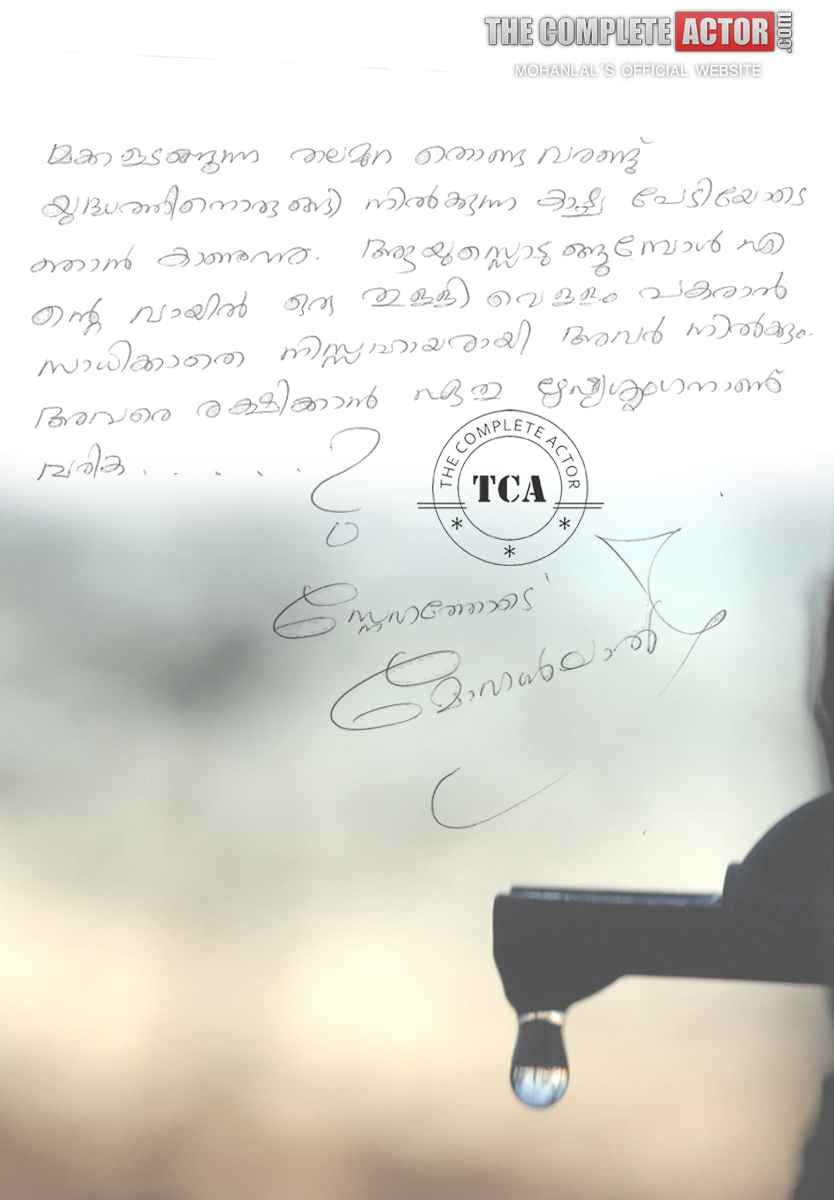 THE COMPLETE ACTOR.com
MOHANLAL'S OFFICIAL WEBSITE
മക്കളടങ്ങുന്ന തലമുറ തൊണ്ട വരണ്ട്
യുദ്ധത്തിനൊരുങ്ങി നിൽക്കുന്ന കാഴ്ച പേടിയോടെ
ഞാൻ കാണുന്നു. ആയുസ്സൊടുങ്ങുമ്പോൾ എ
ന്റെ വായിൽ ഒരു തുള്ളി വെള്ളം പകരാൻ
സാധിക്കാതെ നിസ്സഹായരായി അവർ നിൽക്കും.
അവരെ രക്ഷിക്കാൻ ഏത് ഋഷ്യശൃംഗനാണ്
വരിക . . . . . ?
THE COMPLETE ACTOR
TCA
സ്നേഹത്തോടെ
മോഹൻലാൽ